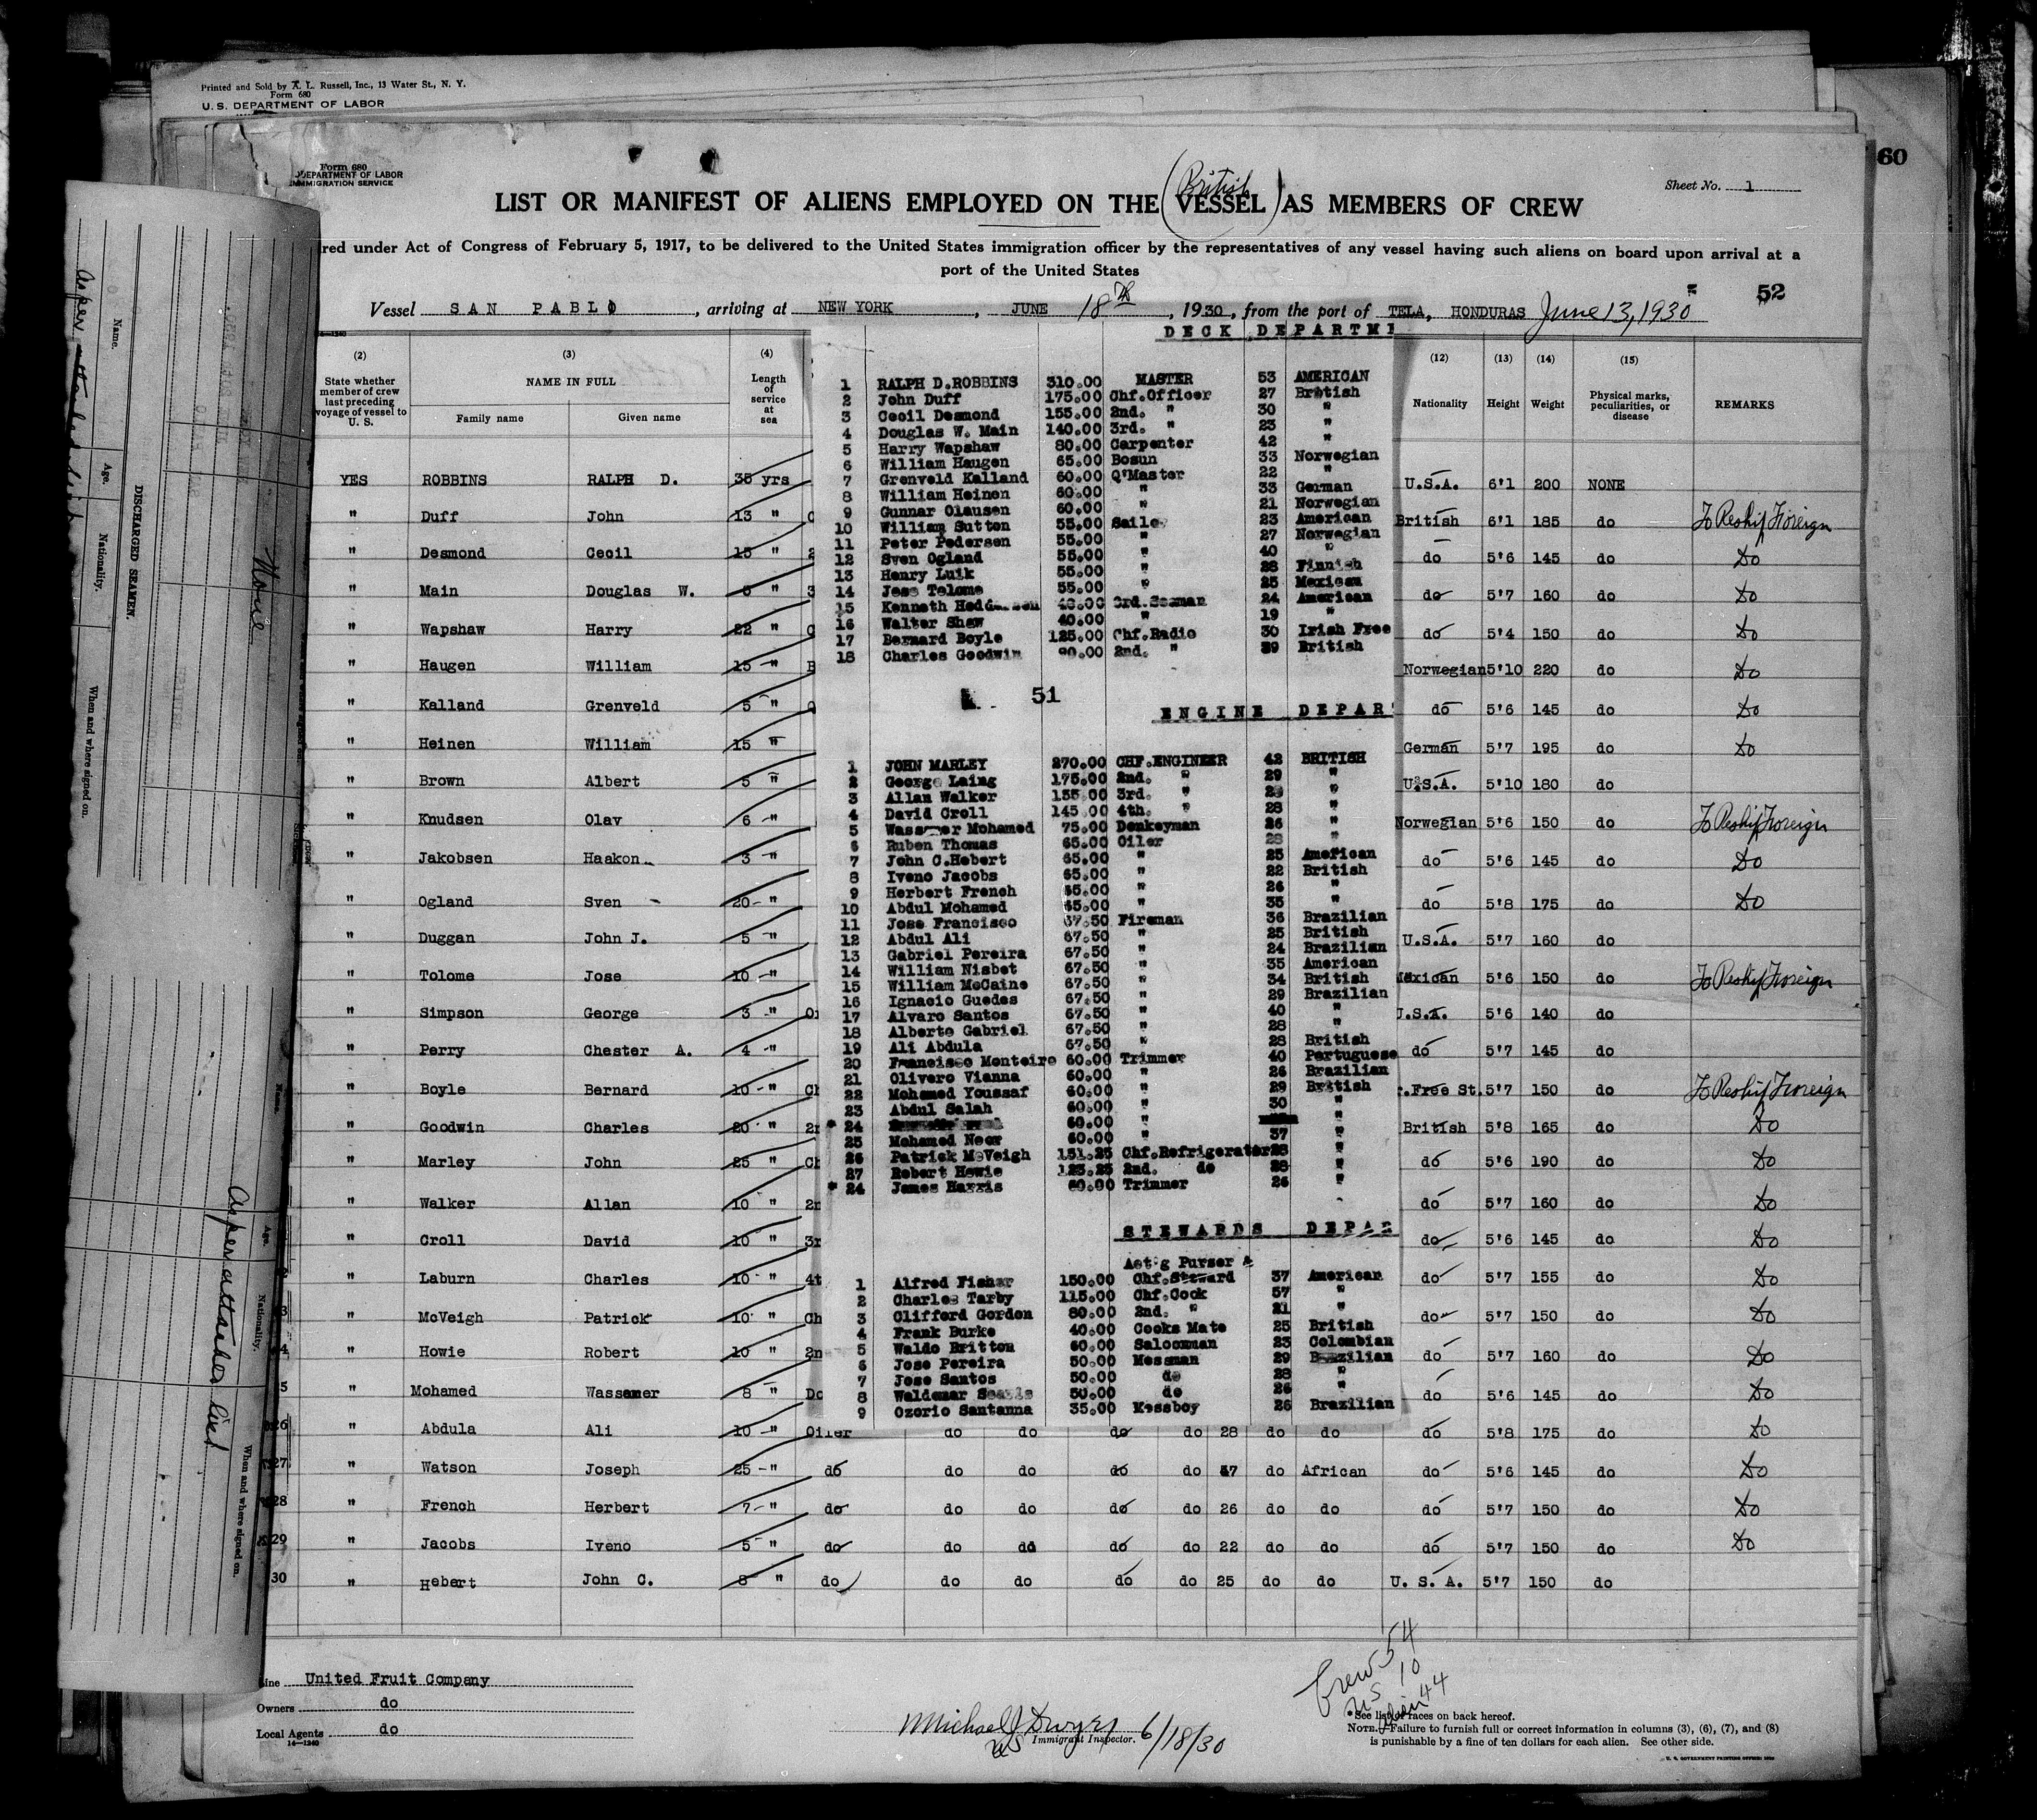 Printed and Sold by A. L. Russell, Inc., 13 Water St., N. Y.
Form 680
U. S. DEPARTMENT OF LABOR
60
Form 680
DEPARTMENT OF LABOR
IMMIGRATION SERVICE
Sheet No. 1
British
LIST OR MANIFEST OF ALIENS EMPLOYED ON THE (VESSEL) AS MEMBERS OF CREW
red under Act of Congress of February 5, 1917, to be delivered to the United States immigration officer by the representatives of any vessel having such aliens on board upon arrival at a
port of the United States
52
Vessel SAN PABLO, arriving at NEW YORK, JUNE 18th, 1930, from the port of TELA, HONDURAS June 13, 1930
(2) State whether member of crew last preceding voyage of vessel to U. S.
(3) NAME IN FULL
Family name Given name
(4) Length of service at sea
(12) Nationality
(13) Height
(14) Weight
(15) Physical marks, peculiarities, or disease
REMARKS
YES ROBBINS RALPH D. 35 yrs U.S.A. 6'1 200 NONE
" Duff John 13 " British 6'1 185 do To Reship Foreign
" Desmond Cecil 15 " 2 do 5'6 145 do Do
" Main Douglas W. 6 " 3 do 5'7 160 do Do
" Wapshaw Harry 22 " do 5'4 150 do Do
" Haugen William 15 " B Norwegian 5'10 220 do Do
" Kalland Grenveld 5 " do 5'6 145 do Do
" Heinen William 15 " German 5'7 195 do Do
" Brown Albert 5 " U.S.A. 5'10 180 do
" Knudsen Olav 6 " Norwegian 5'6 150 do To Reship Foreign
" Jakobsen Haakon 3 " do 5'6 145 do Do
" Ogland Sven 20 " do 5'8 175 do Do
" Duggan John J. 5 " U.S.A. 5'7 160 do
" Tolome Jose 10 " Mexican 5'6 150 do To Reship Foreign
" Simpson George 3 " Or U.S.A. 5'6 140 do
" Perry Chester A. 4 " do 5'7 145 do
" Boyle Bernard 10 " Ch r.Free St. 5'7 150 do To Reship Foreign
" Goodwin Charles 20 " 2n British 5'8 165 do Do
" Marley John 25 " Ch do 5'6 190 do Do
" Walker Allan 10 " 2n do 5'7 160 do Do
" Croll David 10 " 3r do 5'6 145 do Do
" Laburn Charles 10 " 4t do 5'7 155 do Do
" McVeigh Patrick 10 " Ch do 5'7 150 do Do
" Howie Robert 10 " 2n do 5'7 160 do Do
" Mohamed Wassamer 8 " Do do 5'6 145 do Do
26 " Abdula Ali 10 " Oiler do do do do 28 do do do 5'8 175 do Do
27 " Watson Joseph 25 " do do do do do 47 do African do 5'6 145 do Do
28 " French Herbert 7 " do do do do do 26 do do do 5'7 150 do Do
29 " Jacobs Iveno 5 " do do do do do 22 do do do 5'7 150 do Do
30 " Hebert John C. 8 " do do do do do 25 do do U. S. A. 5'7 150 do
DECK DEPARTME
1 RALPH D.ROBBINS 310.00 MASTER 53 AMERICAN
2 John Duff 175.00 Chf.Officer 27 British
3 Cecil Desmond 155.00 2nd. " 30 "
4 Douglas W. Main 140.00 3rd. " 23 "
5 Harry Wapshaw 80.00 Carpenter 42 "
6 William Haugen 65.00 Bosun 33 Norwegian
7 Grenveld Kalland 60.00 Q'Master 22 "
8 William Heinen 60.00 " 33 German
9 Gunnar Olausen 60.00 " 21 Norwegian
10 William Sutton 55.00 Sailo 23 American
11 Peter Pedersen 55.00 " 27 Norwegian
12 Sven Ogland 55.00 " 40 "
13 Henry Luik 55.00 " 28 Finnish
14 Jose Tolome 55.00 " 25 Mexican
15 Kenneth 40.00 Ord.Seaman 24 American
16 Walter Shaw 40.00 " 19 "
17 Bernard Boyle 125.00 Chf.Radio 30 Irish Free
18 Charles Goodwin 90.00 2nd. " 29 British
51
ENGINE DEPAR
1 JOHN MARLEY 270.00 CHF.ENGINEER 42 BRITISH
2 George Laing 175.00 2nd. " 29 "
3 Allan Walker 155.00 3rd. " "
4 David Croll 145.00 4th. " 28 "
5 Mohamed 75.00 Donkeyman 26 "
6 Ruben Thomas 65.00 Oiler 28 "
7 John C.Hebert 65.00 " 25 American
8 Iveno Jacobs 65.00 " 22 British
9 Herbert French 65.00 " 26 "
10 Abdul Mohamed 65.00 " 35 "
11 Jose Francisco 67.50 Fireman 36 Brazilian
12 Abdul Ali 67.50 " 25 British
13 Gabriel Pereira 67.50 " 24 Brazilian
14 William Nisbet 67.50 " 35 American
15 William McCaine 67.50 " 34 British
16 Ignacio Guedes 67.50 " 29 Brazilian
17 Alvaro Santos 67.50 " 40 "
18 Alberto Gabriel 67.50 " 28 "
19 Ali Abdula 67.50 " 28 British
20 Francisco Monteiro 60.00 Trimmer 40 Portuguese
21 Olivero Vianna 60.00 " 26 Brazilian
22 Mohamed Youssaf 60.00 " 29 British
23 Abdul Salah 60.00 " 30 "
* 24 60.00 " "
25 Mohamed Noor 60.00 " 37 "
26 Patrick McVeigh 151.25 Chf.Refrigerator 28 "
27 Robert Howie 123.25 2nd. do 28 "
* 24 James Harris 60.00 Trimmer 26 "
STEWARDS DEPAR
Act'g Purser &
1 Alfred Fisher 150.00 Chf.Steward 37 American
2 Charles Tarby 115.00 Chf.Cook 57 "
3 Clifford Gordon 80.00 2nd. " 21 "
4 Frank Burke 40.00 Cooks Mate 25 British
5 Waldo Britton 60.00 Saloonman 23 Colombian
6 Jose Pereira 50.00 Messman 29 Brazilian
7 Jose Santos 50.00 do 28 "
8 Waldemar 50.00 do 26 "
9 Ozorio Santanna 35.00 Messboy 26 Brazilian
Line United Fruit Company
Owners do
Local Agents do
14—1240
Michael J Dwyer 6/18/30
US Immigrant Inspector.
Crew 54
US 10
Alien 44
*See list of races on back hereof.
NOTE.—Failure to furnish full or correct information in columns (3), (6), (7), and (8)
is punishable by a fine of ten dollars for each alien. See other side.
U. S. GOVERNMENT PRINTING OFFICE
DISCHARGED SEAMEN.
Name. Age. Nationality. When and where signed on.
As per attached list
None
Name. Age. Nationality. When and where signed on.
As per attached list